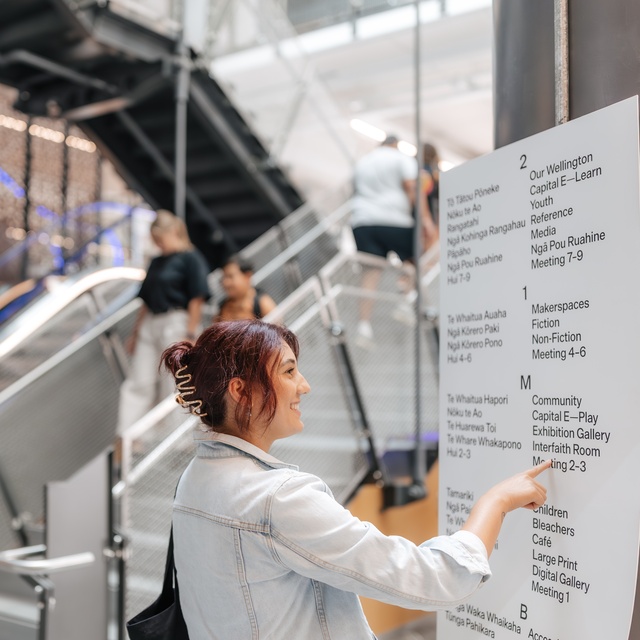 2
Tō Tātou Pōneke
Nōku te Ao
Rangatahi
Ngā Kohinga Rangahau
Pāpāho
Ngā Pou Ruahine
Hui 7–9
Our Wellington
Capital E—Learn
Youth
Reference
Media
Ngā Pou Ruahine
Meeting 7–9
1
Te Whaitua Auaha
Ngā Kōrero Paki
Ngā Kōrero Pono
Hui 4–6
Makerspaces
Fiction
Non-Fiction
Meeting 4–6
M
Te Whaitua Hapori
Nōku te Ao
Te Huarewa Toi
Te Whare Whakapono
Hui 2–3
Community
Capital E—Play
Exhibition Gallery
Interfaith Room
Meeting 2–3
Tamariki
Children
Bleachers
Café
Large Print
Digital Gallery
Meeting 1
B
Waka Whaikaha
Pahikara